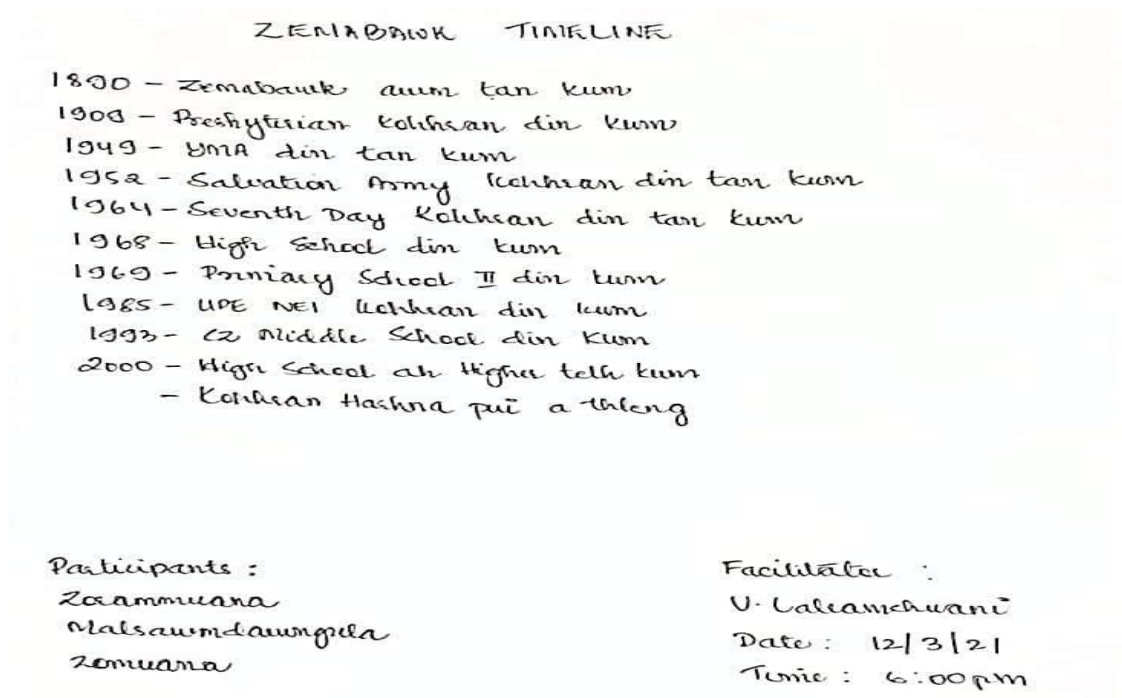 ZEMABAWK TIMELINE
1890 - Zemabawk awm tan kum
1909 - Presbyterian Kohhran din kum
1949 - YMA din tan kum
1952 - Salvation Army Kohhran din tan kum
1964 - Seventh Day Kohhran din tan kum
1968 - High School din kum
1969 - Primary School II din kum
1985 - UPC NEI Kohhran din kum
1993 - Middle School din kum
2000 - High School ah Higher telh kum
- Kohhran Hashna pui a thleng
Participants :
Zorammuana
Malsawmdawngela
Zomuana
Facilitator :
V. Lalramchuani
Date : 12/3/21
Time : 6:00 pm